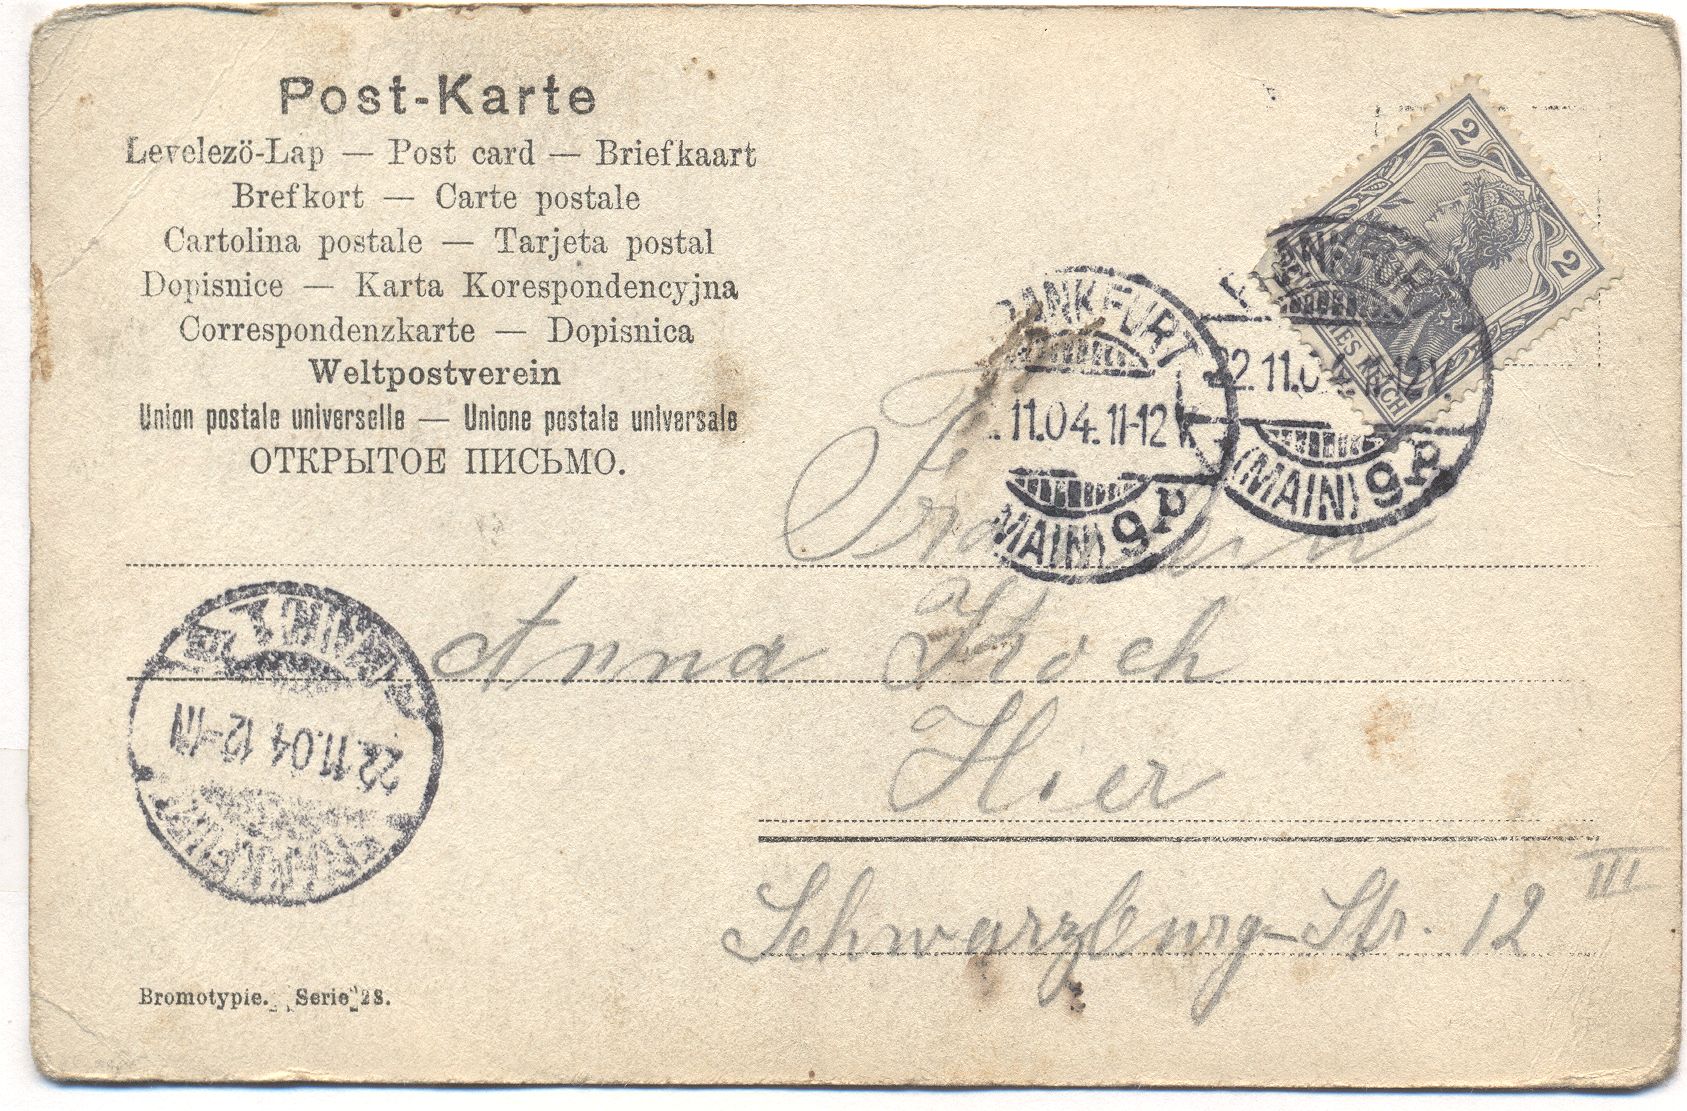 Post-Karte
Levelezö-Lap — Post card — Briefkaart
Brefkort — Carte postale
Cartolina postale — Tarjeta postal
Dopisnice — Karta Korespondencyjna
Correspondenzkarte — Dopisnica
Weltpostverein
Union postale universelle — Unione postale universale
ОТКРЫТОЕ ПИСЬМО.
2
2
REICH
FRANKFURT
22.11.04. 11-12V.
(MAIN) 9p
RANKFURT
11.04. 11-12V
(MAIN) 9p
Fräulein
Anna Koch
Hier
Schwarzburg-Str. 12 III
22.11.04 12-1N
Bromotypie. Serie 28.